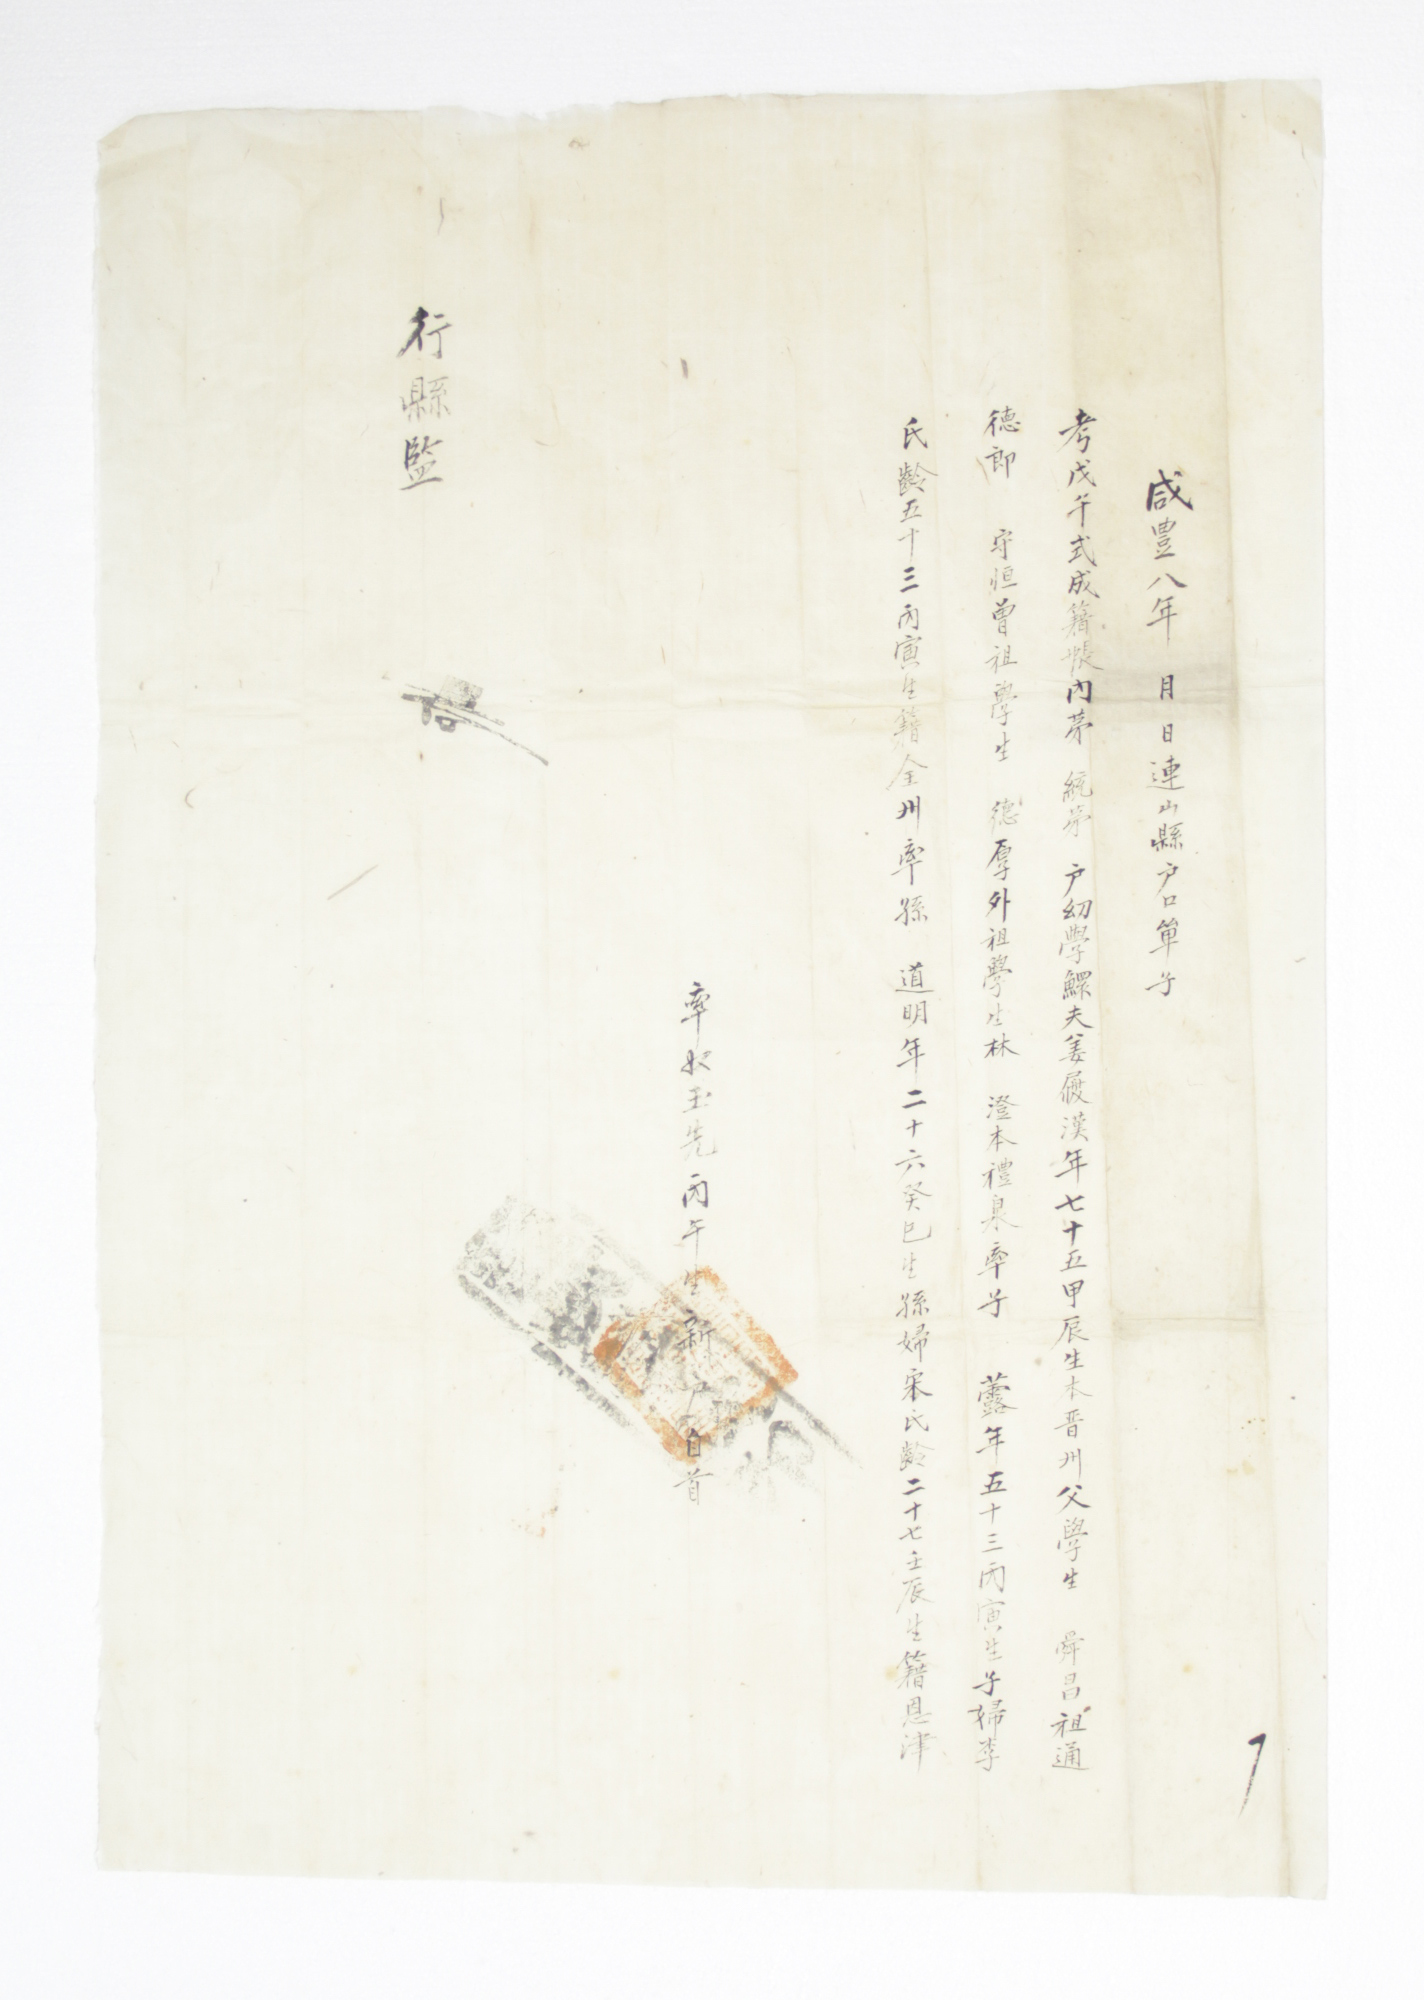 咸豊八年 月 日連山縣户口單子
考戊午式成籍帳內苐 統苐 户幼學鰥夫姜履漢年七十五甲辰生本晋州父學生 舜昌祖通
德郎 守恒曾祖學生 德厚外祖學生林 澄本禮泉率子 年五十三丙寅生子婦李
氏齡五十三丙寅生籍全州率孫 道明年二十六癸巳生孫婦宋氏齡二十七壬辰生籍恩津
率奴玉先丙午生新户自首
行縣監